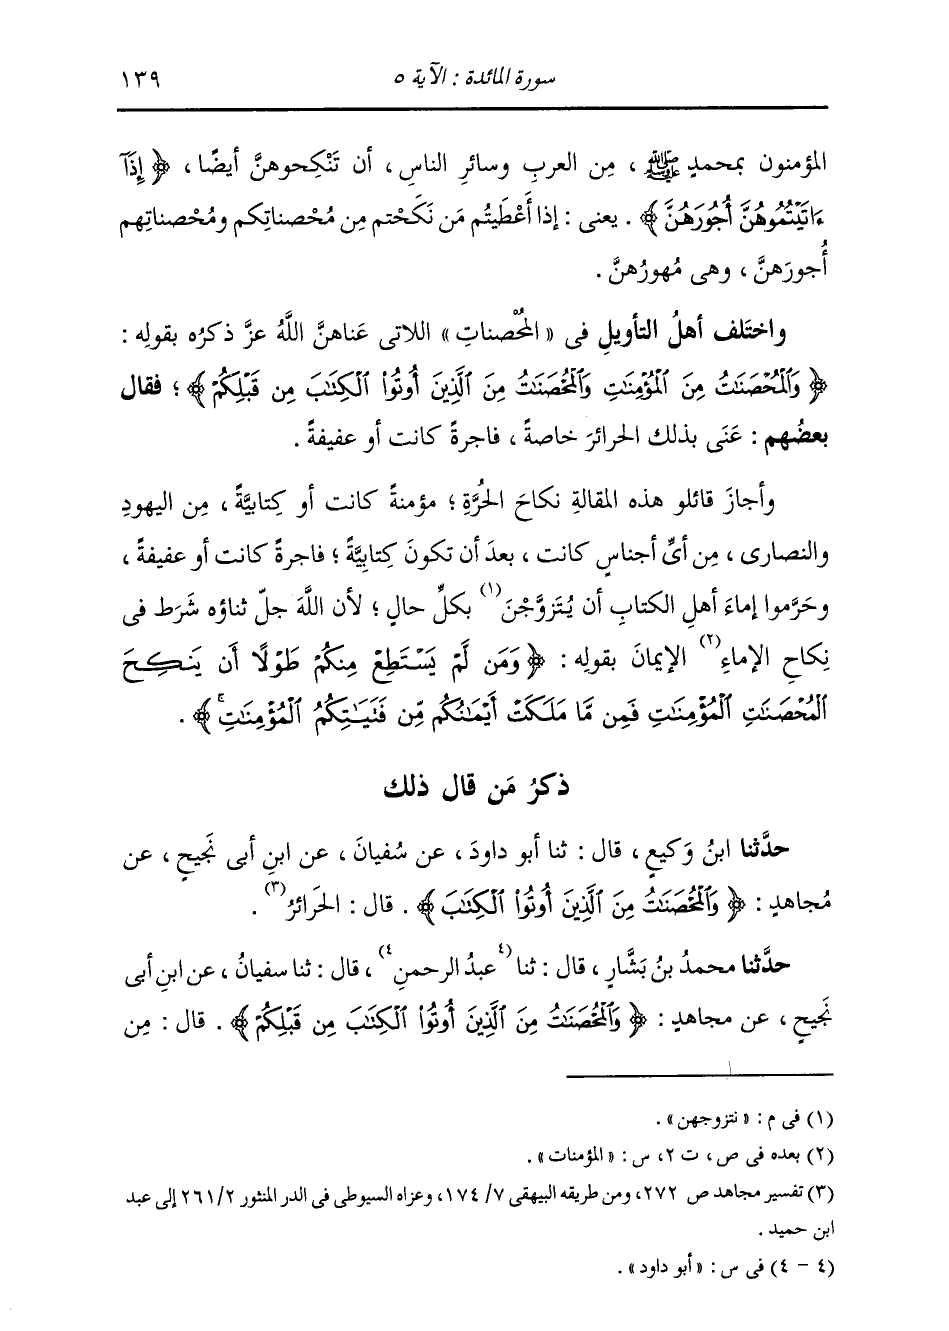 سورة المائدة : الآية ٥ ١٣٩
المؤمنون بمحمدٍ ﷺ ، مِن العربِ وسائرِ الناسِ ، أن تَنْكِحوهنَّ أيضًا ، ﴿ إِذَآ
ءَاتَيْتُمُوهُنَّ أُجُورَهُنَّ ﴾ . يعنى : إذا أَعْطَيتُم مَن نَكَحْتم مِن مُحْصناتِكم ومُحْصناتِهم
أُجورَهنَّ ، وهى مُهورُهنَّ .
واختَلف أهلُ التأويلِ فى « المُحْصناتِ » اللاتى عَناهنَّ اللَّهُ عزَّ ذكرُه بقولِه :
﴿ وَٱلْمُحْصَنَٰتُ مِنَ ٱلْمُؤْمِنَٰتِ وَٱلْمُحْصَنَٰتُ مِنَ ٱلَّذِينَ أُوتُوا۟ ٱلْكِتَٰبَ مِن قَبْلِكُمْ ﴾ ؛ فقال
بعضُهم : عَنَى بذلك الحرائرَ خاصةً ، فاجرةً كانت أو عفيفةً .
وأجازَ قائلو هذه المقالةِ نكاحَ الحُرَّةِ ؛ مؤمنةً كانت أو كِتابيَّةً ، مِن اليهودِ
والنصارى ، مِن أىِّ أجناسٍ كانت ، بعدَ أن تكونَ كِتابِيَّةً ؛ فاجرةً كانت أو عفيفةً ،
وحَرَّموا إماءَ أهلِ الكتابِ أن يُتَزوَّجْنَ(١) بكلِّ حالٍ ؛ لأن اللَّهَ جلّ ثناؤه شَرَط فى
نِكاحِ الإماءِ(٢) الإيمانَ بقولِه : ﴿ وَمَن لَّمْ يَسْتَطِعْ مِنكُمْ طَوْلًا أَن يَنكِحَ
ٱلْمُحْصَنَٰتِ ٱلْمُؤْمِنَٰتِ فَمِن مَّا مَلَكَتْ أَيْمَٰنُكُم مِّن فَتَيَٰتِكُمُ ٱلْمُؤْمِنَٰتِ ۚ ﴾ .
ذكرُ مَن قال ذلك
حدَّثنا ابنُ وَكيعٍ ، قال : ثنا أبو داودَ ، عن سُفيانَ ، عن ابنِ أبى نَجيحٍ ، عن
مُجاهدٍ : ﴿ وَٱلْمُحْصَنَٰتُ مِنَ ٱلَّذِينَ أُوتُوا۟ ٱلْكِتَٰبَ ﴾ . قال : الحَرائرُ(٣) .
حدَّثنا محمدُ بنُ بَشَّارٍ ، قال : ثنا (٤عبدُ الرحمنِ٤) ، قال : ثنا سفيانُ ، عن ابنِ أبى
نَجيحٍ ، عن مجاهدٍ : ﴿ وَٱلْمُحْصَنَٰتُ مِنَ ٱلَّذِينَ أُوتُوا۟ ٱلْكِتَٰبَ مِن قَبْلِكُمْ ﴾ . قال : مِن
(١) فى م : « نتزوجهن » .
(٢) بعده فى ص ، ت ٢، س : « المؤمنات » .
(٣) تفسير مجاهد ص ٢٧٢، ومن طريقه البيهقى ٧/ ١٧٤، وعزاه السيوطى فى الدر المنثور ٢٦١/٢ إلى عبد
ابن حميد .
(٤ - ٤) فى س : « أبو داود » .